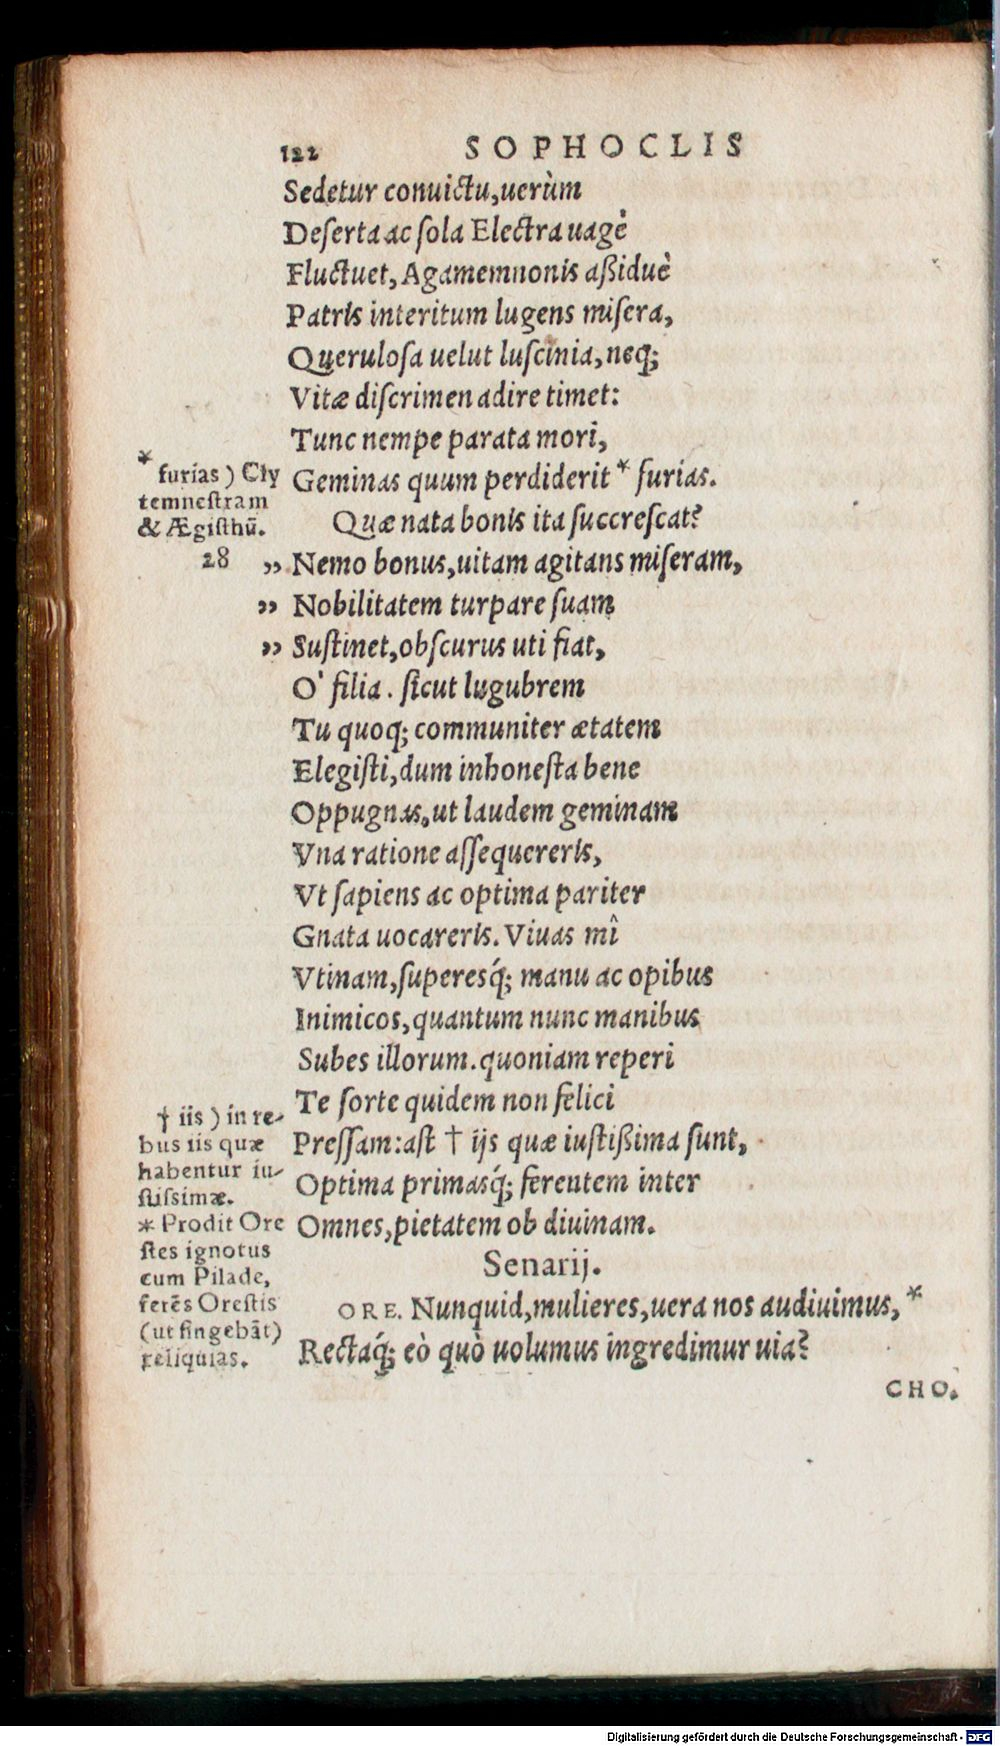 122 SOPHOCLIS
Sedetur conuictu, uerùm
Deserta ac sola Electra uagè
Fluctuet, Agamemnonis aßiduè
Patris interitum lugens misera,
Querulosa uelut luscinia, neq;
Vitæ discrimen adire timet:
Tunc nempe parata mori,
Geminas quum perdiderit * furias.
Quæ nata bonis ita succrescat?
„ Nemo bonus, uitam agitans miseram,
„ Nobilitatem turpare suam
„ Sustinet, obscurus uti fiat,
O' filia. sicut lugubrem
Tu quoq; communiter ætatem
Elegisti, dum inhonesta bene
Oppugnas, ut laudem geminam
Vna ratione assequereris,
Vt sapiens ac optima pariter
Gnata uocareris. Viuas mî
Vtinam, superesq́; manu ac opibus
Inimicos, quantum nunc manibus
Subes illorum. quoniam reperi
Te sorte quidem non felici
Pressam: ast † ijs quæ iustißima sunt,
Optima primasq́; ferentem inter
Omnes, pietatem ob diuinam.
Senarij.
ORE. Nunquid, mulieres, uera nos audiuimus, *
Rectaq́; eò quò uolumus ingredimur uia?
CHO.
*
furias) Cly
temnestram
& Ægisthū.
28
† iis) in re-
bus iis quæ
habentur iu-
stissimæ.
* Prodit Ore
stes ignotus
cum Pilade,
ferēs Orestis
(ut fingebāt)
reliquias.
Digitalisierung gefördert durch die Deutsche Forschungsgemeinschaft - DFG